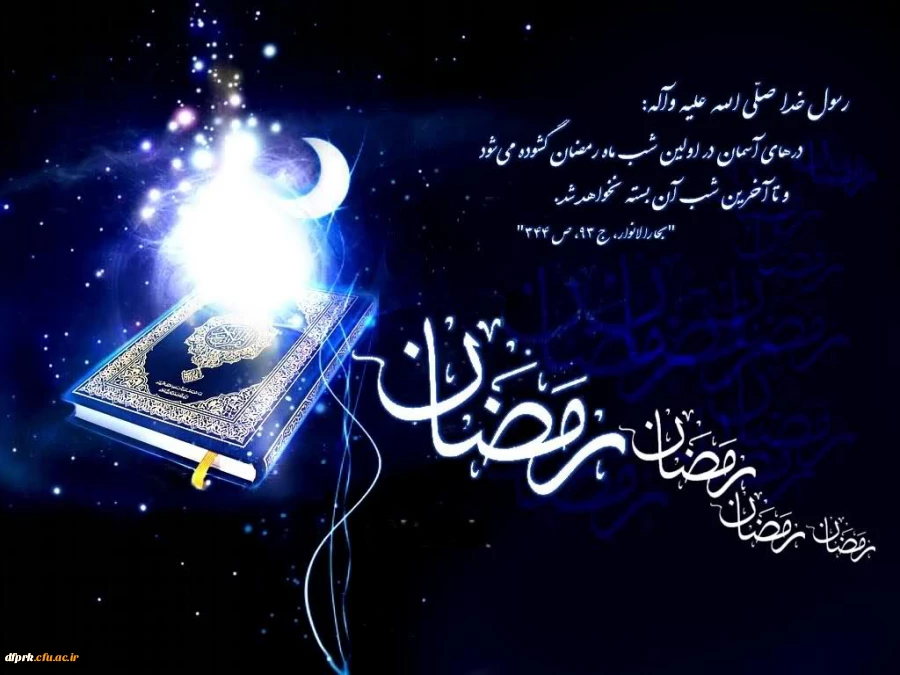 رسول خدا صلّی الله علیه وآله:
درهای آسمان در اولین شب ماه رمضان گشوده می‌شود
و تا آخرین شب آن بسته نخواهد شد.
"بحارالانوار، ج ۹۳، ص ۳۴۴"
رمضان
رمضان
رمضان
رمضان
dfprk.cfu.ac.ir